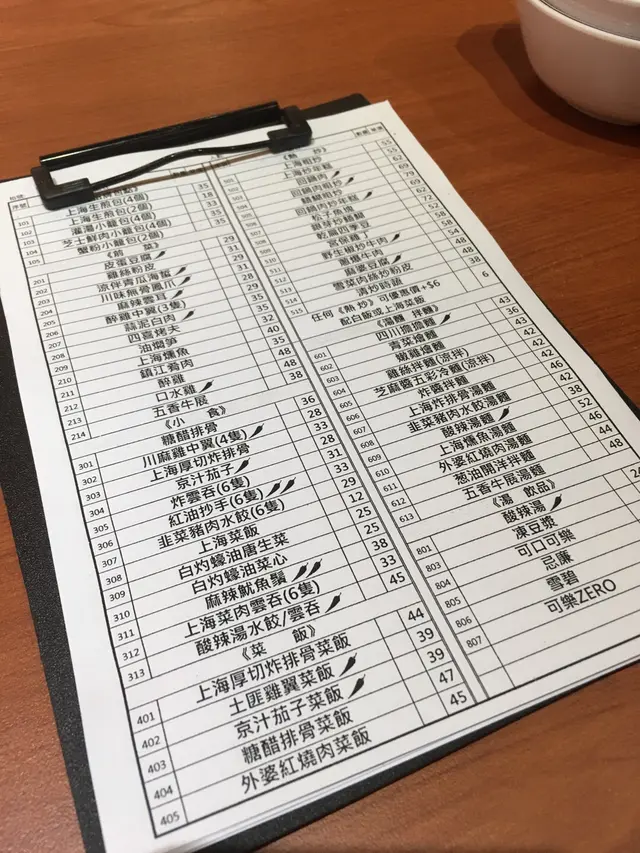 101 上海生煎包(4個) 35
102 上海生煎包(2個) 18
103 灌湯小籠包(4個) 33
104 芝士鮮肉小籠包(4個) 35
105 蟹粉小籠包(2個)
《前 菜》
201 皮蛋豆腐 29
202 雞絲粉皮 31
203 涼伴青瓜海蜇
川味無骨鳳爪
205 麻辣雲耳
206 醉雞中翼(3隻)
蒜泥白肉
208 四喜烤夫
209 油燜筍
210 上海燻魚
211 鎮江肴肉
212 醉雞
213 口水雞 48
214 五香牛展 38
《小 食》
301 糖醋排骨 36
302 川麻雞中翼(4隻) 28
303 上海厚切炸排骨 33
304 京汁茄子 28
305 炸雲吞(6隻) 31
306 紅油抄手(6隻) 33
307 韭菜豬肉水餃(6隻) 29
308 上海菜飯 12
309 白灼蠔油唐生菜 25
310 白灼蠔油菜心 25
311 麻辣魷魚鬚 38
312 上海菜肉雲吞(6隻) 33
313 酸辣湯水餃/雲吞 45
《菜 飯》
401 上海厚切炸排骨菜飯 44
402 土匪雞翼菜飯 39
403 京汁茄子菜飯 39
404 糖醋排骨菜飯 47
405 外婆紅燒肉菜飯 45
《熱 炒》
上海粗炒 55
上海炒年糕 55
回鍋肉
回鍋肉粗炒
回鍋肉炒年糕
松子魚塊
乾煸四季豆
宮保雞丁
野生椒炒牛肉
蔥爆牛肉
麻婆豆腐
雪菜肉絲炒粉皮
清炒時蔬
任何《熱炒》可優惠價+$6
配白飯或上海菜飯 6
《湯麵 拌麵》
601 四川擔擔麵 43
602 青菜燴麵 36
603 嫩雞燴麵
604 雞絲拌麵(涼拌)
605 芝麻醬五彩冷麵(涼拌)
606 炸醬拌麵
607 上海炸排骨湯麵
608 韭菜豬肉水餃湯麵
609 酸辣湯麵
610 上海燻魚湯麵
611 外婆紅燒肉湯麵
612 葱油開洋拌麵
613 五香牛展湯麵 48
《湯 飲品》
801 酸辣湯
803 凍豆漿
804 可口可樂
805 忌廉
806 雪碧
807 可樂ZERO